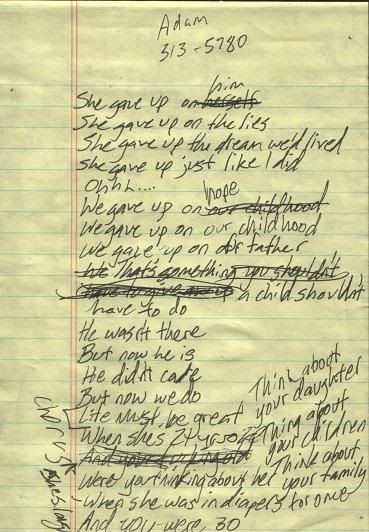 Adam
313-5780
him
She gave up on herself
She gave up on the lies
She gave up the dream we'd lived
She gave up just like I did
Ohhh....
hope
We gave up on our childhood
We gave up on our childhood
We gave up on our father
that's something you shouldn't
have to give up a child shouldn't
have to do
He wasn't there
But now he is
He didn't care
But now we do
Life must be great
When shes 21 yrs old
And you're
Were you thinking about her
When she was in diapers for once
And you were 30
Think about
your daughter
Thing about
your children
Think about
your family